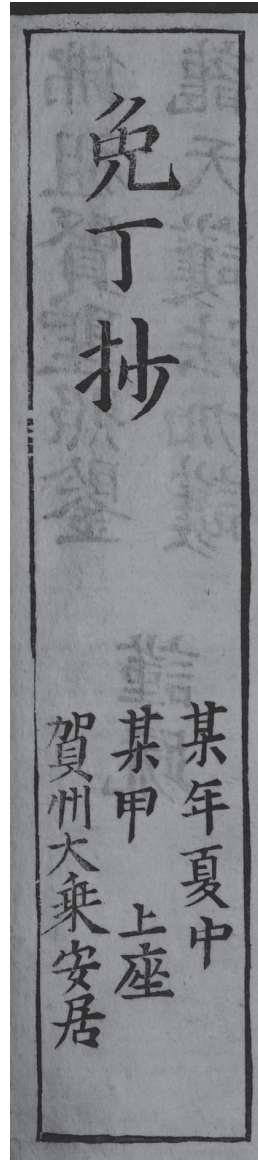 免丁抄
某年夏中
某甲　上座
賀州大乗安居